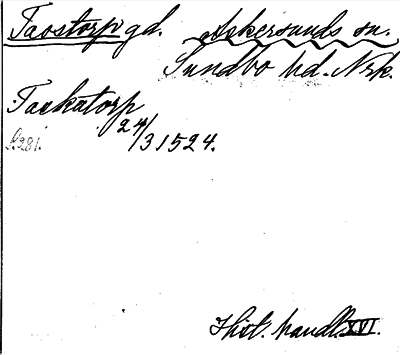 Taostorp gd. Askersunds sn.
Sundbo hd. Nrk.
Taskatorp
24/3 1524.
S. 281.
Hist. handl. XVI.